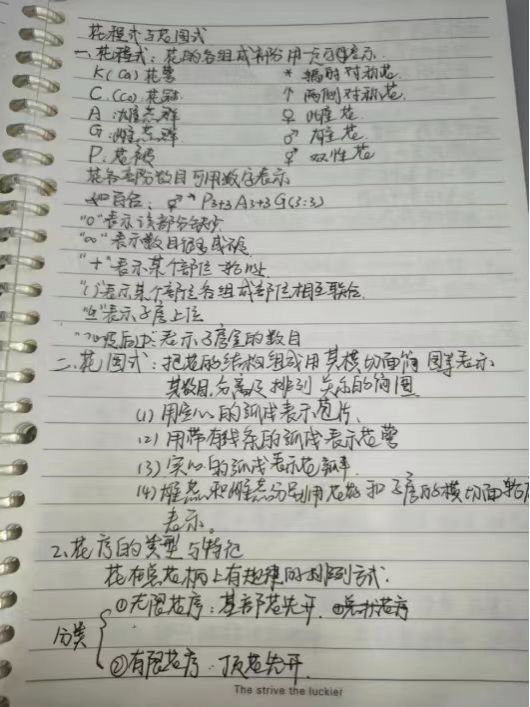 花程式与花图式
一、花程式：花的各组成部分用一定符号表示.
K(Ca)花萼 * 辐射对称花
C.(Co)花冠 ↑ 两侧对称花
A:雄蕊群 ♀ 雌花
G:雌蕊群 ♂ 雄花
P:花被 两性花
花各部分数目可用数字表示
如百合: P3+3 A3+3 G(3:3)
"0"表示该部分缺少
"∞"表示数目很多或
"+"表示某个部位轮
"()"表示某个部位各组成部位相互联合.
"G"表示子房上位
表示子房室的数目
二、花图式：把花的结构组成用其横切面简图等表示
其数目、分离及排列关系的简图
(1) 用空心的弧线表示苞片、
(2) 用带有线条的弧线表示花萼
(3) 实心的弧线表示花瓣
(4) 雄蕊和雌蕊分别用花药和子房的横切面轮廓
表示。
2、花序的类型与特征
花在总花柄上有规律的排列方式.
分类 ①无限花序：基部花先开. 花序
②有限花序：顶花先开.
The strive the luckier